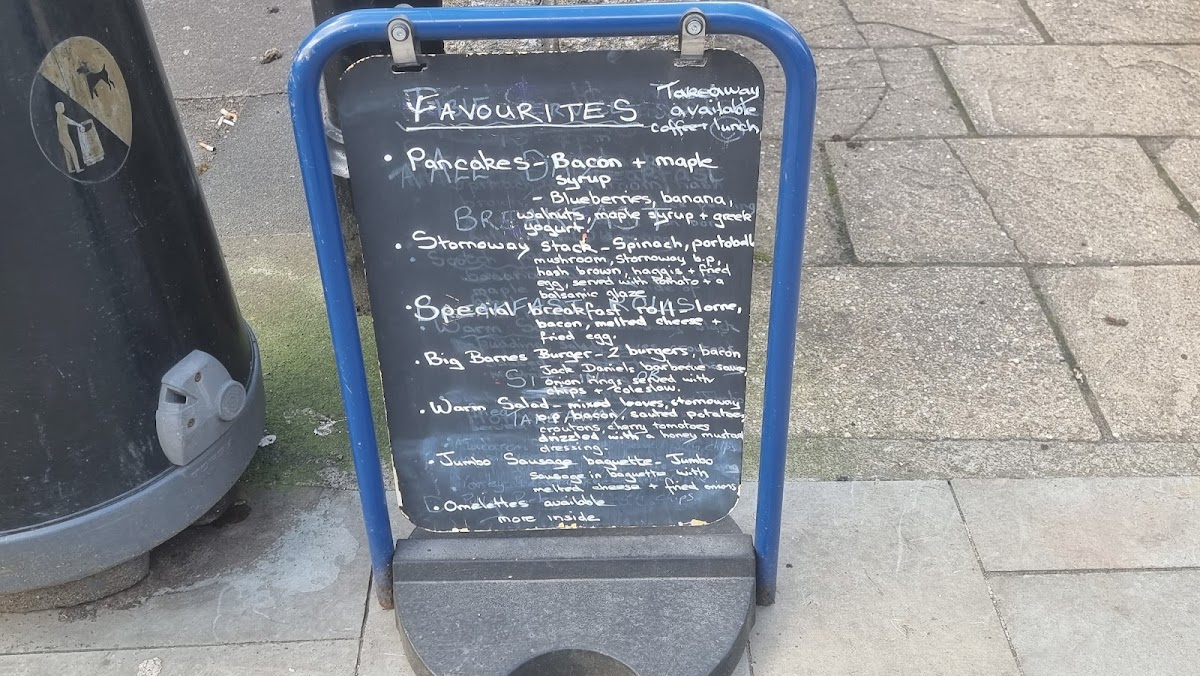 FAVOURITES
Takeaway
available
coffee + lunch
• Pancakes - Bacon + maple
syrup
- Blueberries, banana,
walnuts, maple syrup + greek
yogurt.
• Stornoway Stack - Spinach, portobello
mushroom, Stornoway b.p,
hash brown, haggis + fried
egg, served with tomato + a
balsamic glaze
• Special breakfast roll - Slorne,
bacon, melted cheese +
fried egg.
• Big Barnes Burger - 2 burgers, bacon
Jack Daniels barbecue sauce,
onion rings served with
chips + coleslaw.
• Warm Salad - mixed leaves, stornoway
b.p, bacon, sauted potatoes,
croutons, cherry tomatoes
drizzled with a honey mustard
dressing.
• Jumbo Sausage baguette - Jumbo
Sausage in baguette with
melted cheese + fried onions
• Omelettes available
more inside